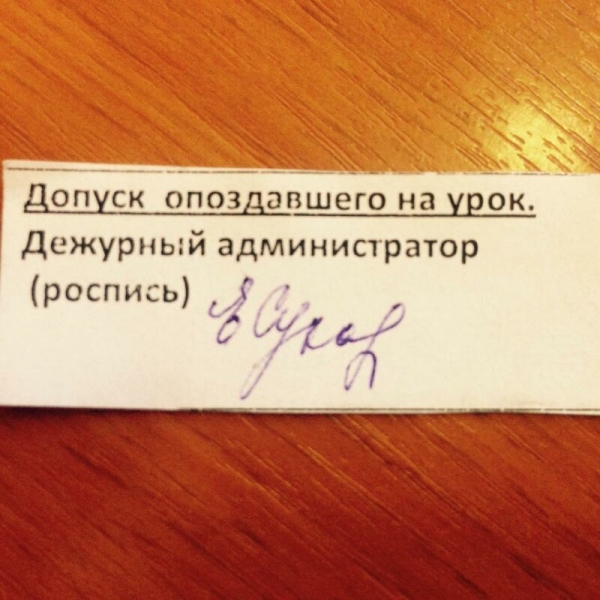 Допуск опоздавшего на урок.
Дежурный администратор
(роспись)